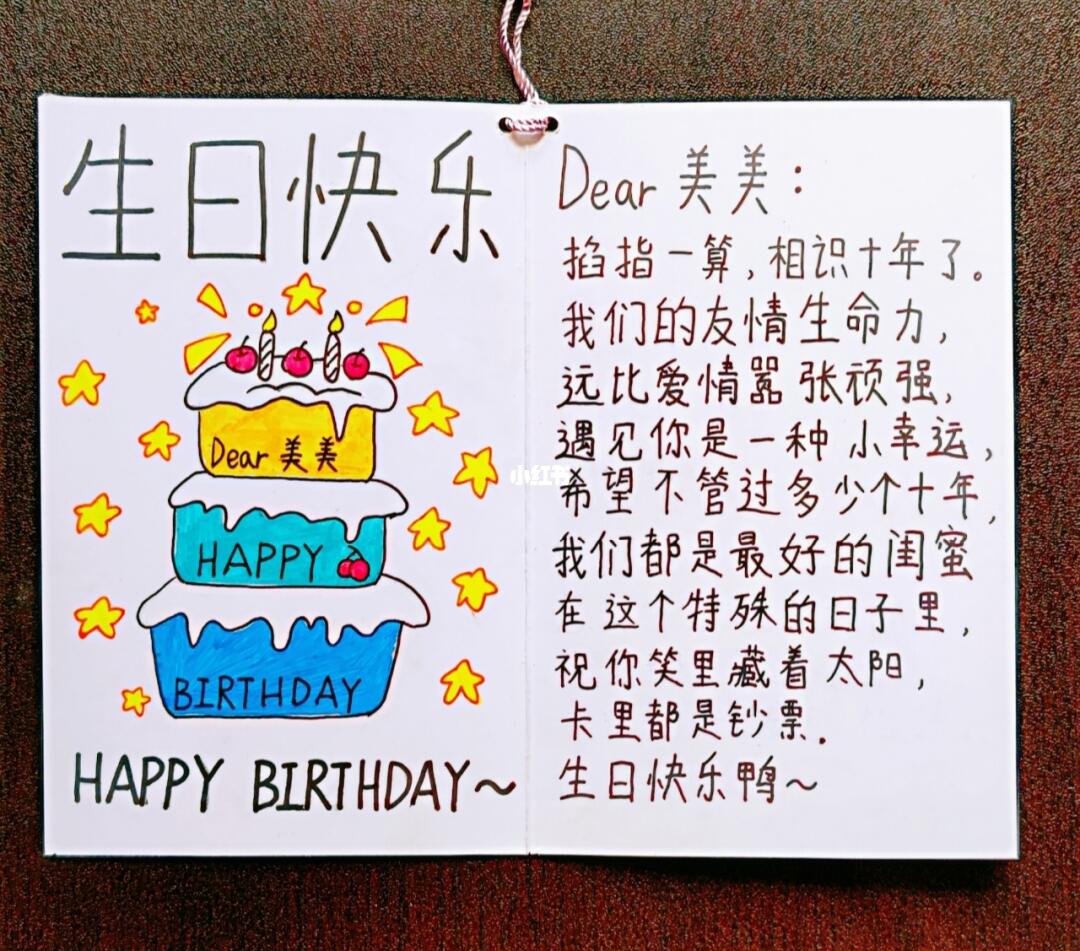 生日快乐
Dear 美美
HAPPY
BIRTHDAY
HAPPY BIRTHDAY~
Dear 美美:
掐指一算,相识十年了。
我们的友情生命力,
远比爱情嚣张顽强,
遇见你是一种小幸运,
希望不管过多少个十年,
我们都是最好的闺蜜
在这个特殊的日子里,
祝你笑里藏着太阳,
卡里都是钞票.
生日快乐鸭~
小红书